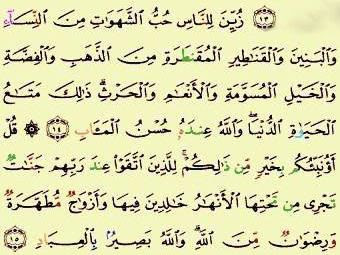 ١٣ زُيِّنَ لِلنَّاسِ حُبُّ الشَّهَوَٰتِ مِنَ النِّسَآءِ
وَالْبَنِينَ وَالْقَنَٰطِيرِ الْمُقَنطَرَةِ مِنَ الذَّهَبِ وَالْفِضَّةِ
وَالْخَيْلِ الْمُسَوَّمَةِ وَالْأَنْعَٰمِ وَالْحَرْثِ ۗ ذَٰلِكَ مَتَٰعُ
الْحَيَوٰةِ الدُّنْيَا ۖ وَاللَّهُ عِندَهُۥ حُسْنُ الْمَـَٔابِ ١٤ ۞ قُلْ
أَؤُنَبِّئُكُم بِخَيْرٍ مِّن ذَٰلِكُمْ ۚ لِلَّذِينَ اتَّقَوْا عِندَ رَبِّهِمْ جَنَّٰتٌ
تَجْرِى مِن تَحْتِهَا الْأَنْهَٰرُ خَٰلِدِينَ فِيهَا وَأَزْوَٰجٌ مُّطَهَّرَةٌ
وَرِضْوَٰنٌ مِّنَ اللَّهِ ۗ وَاللَّهُ بَصِيرٌۢ بِالْعِبَادِ ١٥